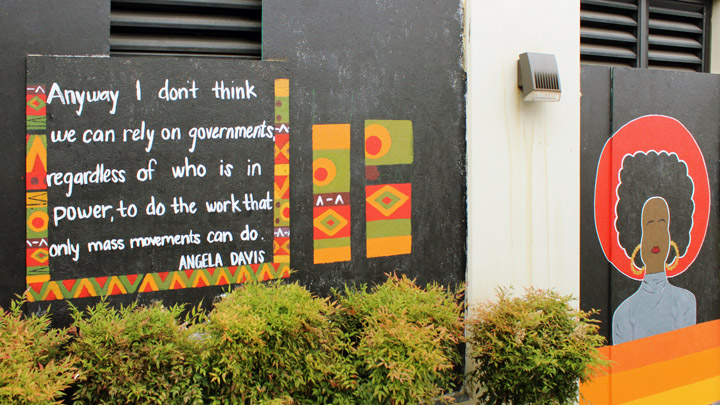 Anyway I don't think
we can rely on governments,
regardless of who is in
power, to do the work that
only mass movements can do.
ANGELA DAVIS